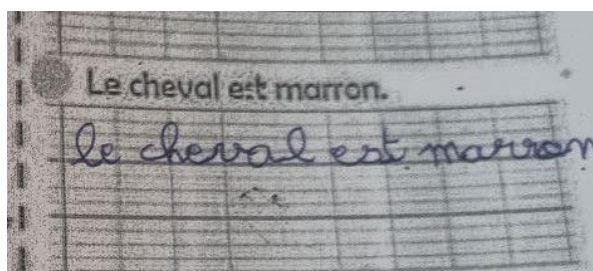 Le cheval est marron.
le cheval est marron